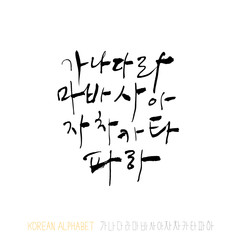 가나다라
마바사아
자차카타
파하
KOREAN ALPHABET 가나다라마바사아자차카타파하